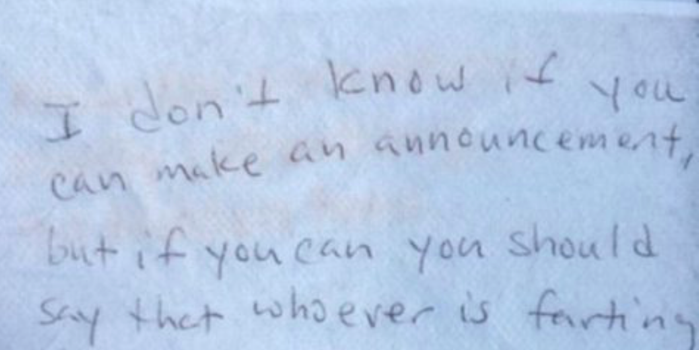 I don't know if you
can make an announcement,
but if you can you should
say that whoever is farting